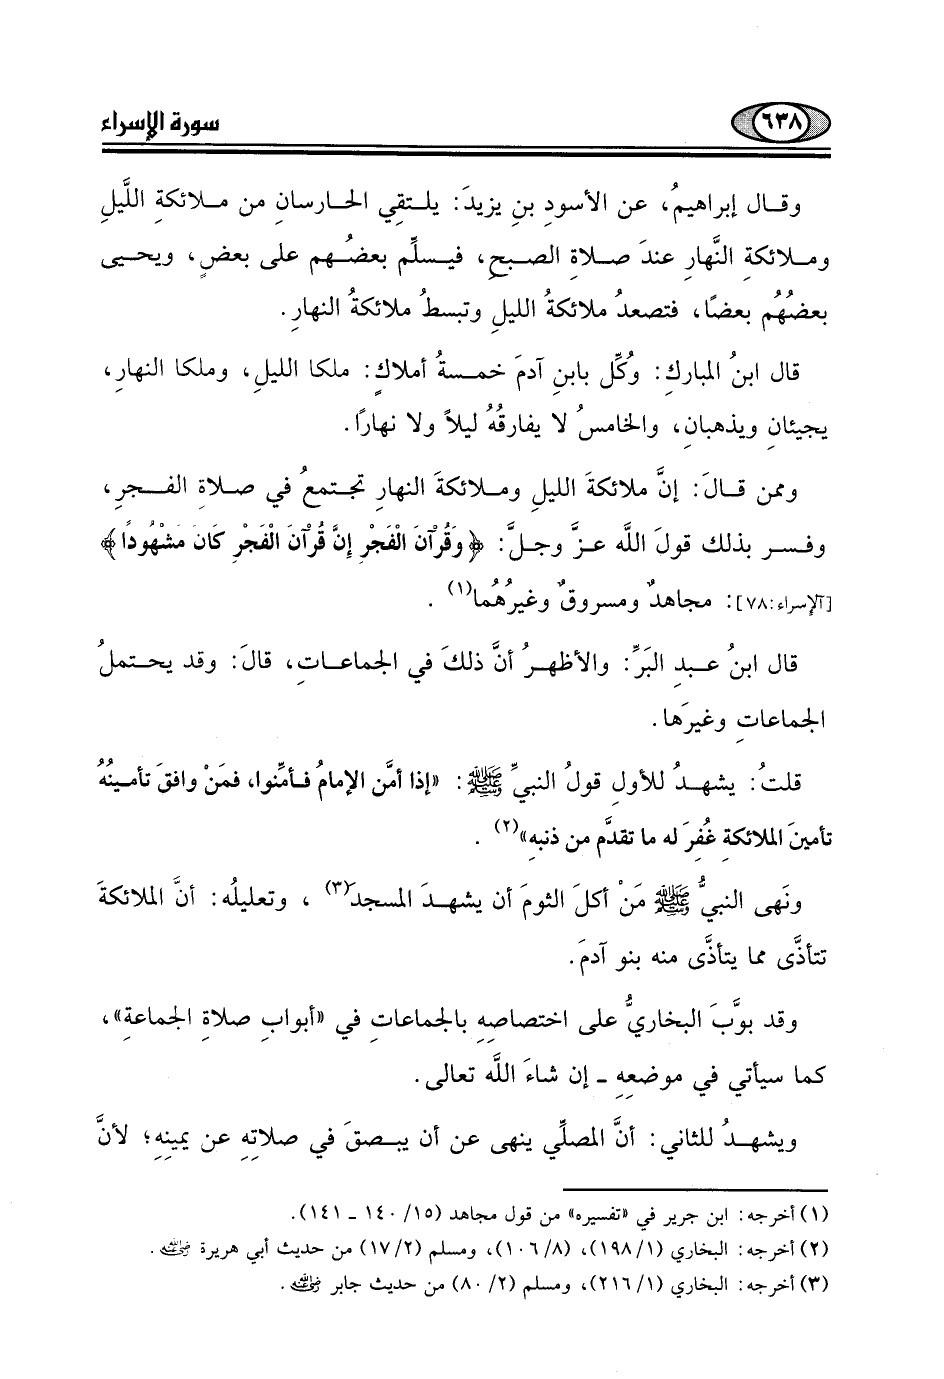 ٦٣٨
سورة الإسراء
وقال إبراهيمُ، عن الأسودِ بنِ يزيدَ: يلتقِي الحارسانِ من ملائكةِ اللَّيلِ
وملائكةِ النَّهارِ عندَ صلاةِ الصبحِ، فيسلِّم بعضُهم على بعضٍ، ويحيى
بعضُهُم بعضًا، فتصعدُ ملائكةُ الليلِ وتبسطُ ملائكةُ النهارِ.
قال ابنُ المباركِ: وُكِّل بابنِ آدمَ خمسةُ أملاكٍ: ملكا الليلِ، وملكا النهارِ،
يجيئانِ ويذهبانِ، والخامسُ لا يفارقُهُ ليلاً ولا نهارًا.
وممن قالَ: إنَّ ملائكةَ الليلِ وملائكةَ النهارِ تجتمعُ في صلاةِ الفجرِ،
وفسر بذلك قولَ اللَّه عزَّ وجلَّ: ﴿وَقُرْآنَ الْفَجْرِ إِنَّ قُرْآنَ الْفَجْرِ كَانَ مَشْهُودًا﴾
[الإسراء:٧٨]: مجاهدٌ ومسروقٌ وغيرُهُما(١) .
قال ابنُ عبدِ البَرِّ: والأظهرُ أنَّ ذلكَ في الجماعاتِ، قالَ: وقد يحتملُ
الجماعاتِ وغيرَها.
قلتُ: يشهدُ للأولِ قولُ النبيِّ ﷺ: «إذا أمَّن الإمامُ فأمِّنوا، فمَنْ وافقَ تأمينُهُ
تأمينَ الملائكةِ غُفِرَ له ما تقدَّم من ذنبِهِ»(٢) .
ونَهى النبيُّ ﷺ مَنْ أكلَ الثومَ أن يشهدَ المسجدَ(٣) ، وتعليلُه: أنَّ الملائكةَ
تتأذَّى مما يتأذَّى منه بنو آدمَ.
وقد بوَّبَ البخاريُّ على اختصاصِهِ بالجماعاتِ في «أبوابِ صلاةِ الجماعةِ»،
كما سيأتي في موضعِهِ ـ إن شاءَ اللَّه تعالى.
ويشهدُ للثاني: أنَّ المصلِّي ينهى عن أن يبصقَ في صلاتِهِ عن يمينِهِ؛ لأنَّ
(١) أخرجه: ابن جرير في «تفسيره» من قول مجاهد (١٥/ ١٤٠ ـ ١٤١).
(٢) أخرجه: البخاري (١/ ١٩٨)، (٨/ ١٠٦)، ومسلم (٢/ ١٧) من حديث أبي هريرة رضي الله عنه .
(٣) أخرجه: البخاري (١/ ٢١٦)، ومسلم (٢/ ٨٠) من حديث جابر رضي الله عنه .